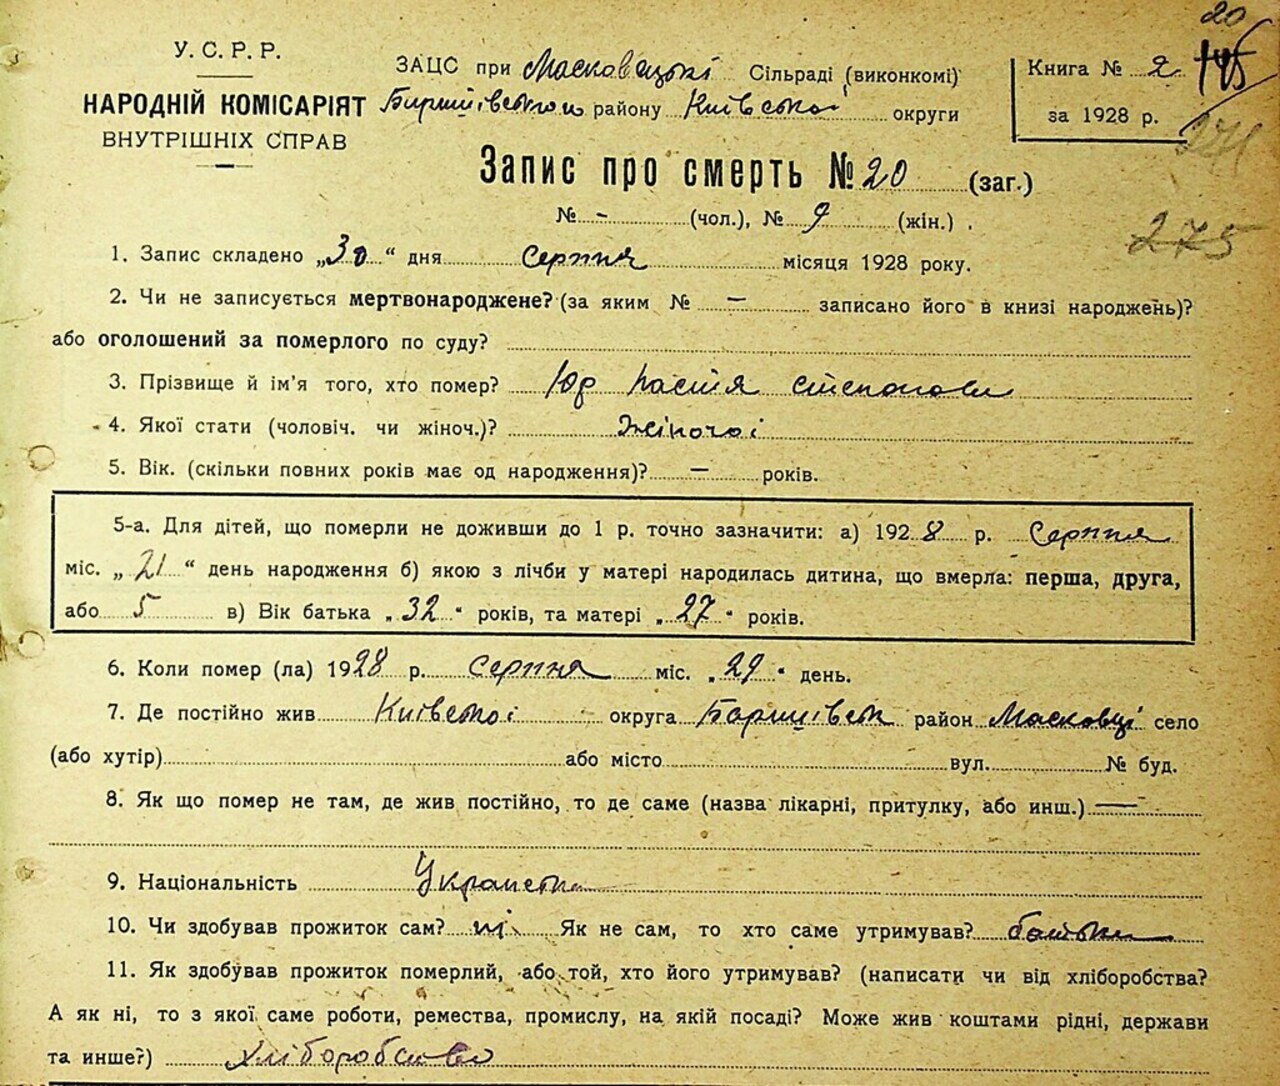 20
У. С. Р. Р.
НАРОДНІЙ КОМІСАРІЯТ
ВНУТРІШНІХ СПРАВ
ЗАЦС при Масковецькі Сільраді (виконкомі)
району Київської округи
Книга № 2
за 1928 р.
145
271
Запис про смерть № 20 (заг.)
№ - (чол.), № 9 (жін.) .
275
1. Запис складено „30“ дня серпня місяця 1928 року.
2. Чи не записується мертвонароджене? (за яким № — записано його в книзі народжень)?
або оголошений за померлого по суду?
3. Прізвище й ім’я того, хто помер? Юр Настя Степанова
4. Якої стати (чоловіч. чи жіноч.)? Жіночої
5. Вік. (скільки повних років має од народження)? — років.
5-а. Для дітей, що померли не доживши до 1 р. точно зазначити: а) 1928 р. Серпня
міс. „21“ день народження б) якою з лічби у матері народилась дитина, що вмерла: перша, друга,
або 5 в) Вік батька „32“ років, та матері „27“ років.
6. Коли помер (ла) 1928 р. серпня міс. „29“ день.
7. Де постійно жив Київської округа Баришівськ район Масковці село
(або хутір) або місто вул. № буд.
8. Як що помер не там, де жив постійно, то де саме (назва лікарні, притулку, або инш.) —
9. Національність Українська
10. Чи здобував прожиток сам? ні Як не сам, то хто саме утримував? батьки
11. Як здобував прожиток померлий, або той, хто його утримував? (написати чи від хліборобства?
А як ні, то з якої саме роботи, ремества, промислу, на якій посаді? Може жив коштами рідні, держави
та инше?) Хліборобство